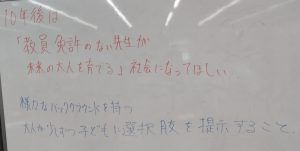 10年後は
「教員免許のない先生が
未来の大人を育てる」社会になってほしい
様々なバックグラウンドを持つ
大人が 子どもに選択肢を提示すること.